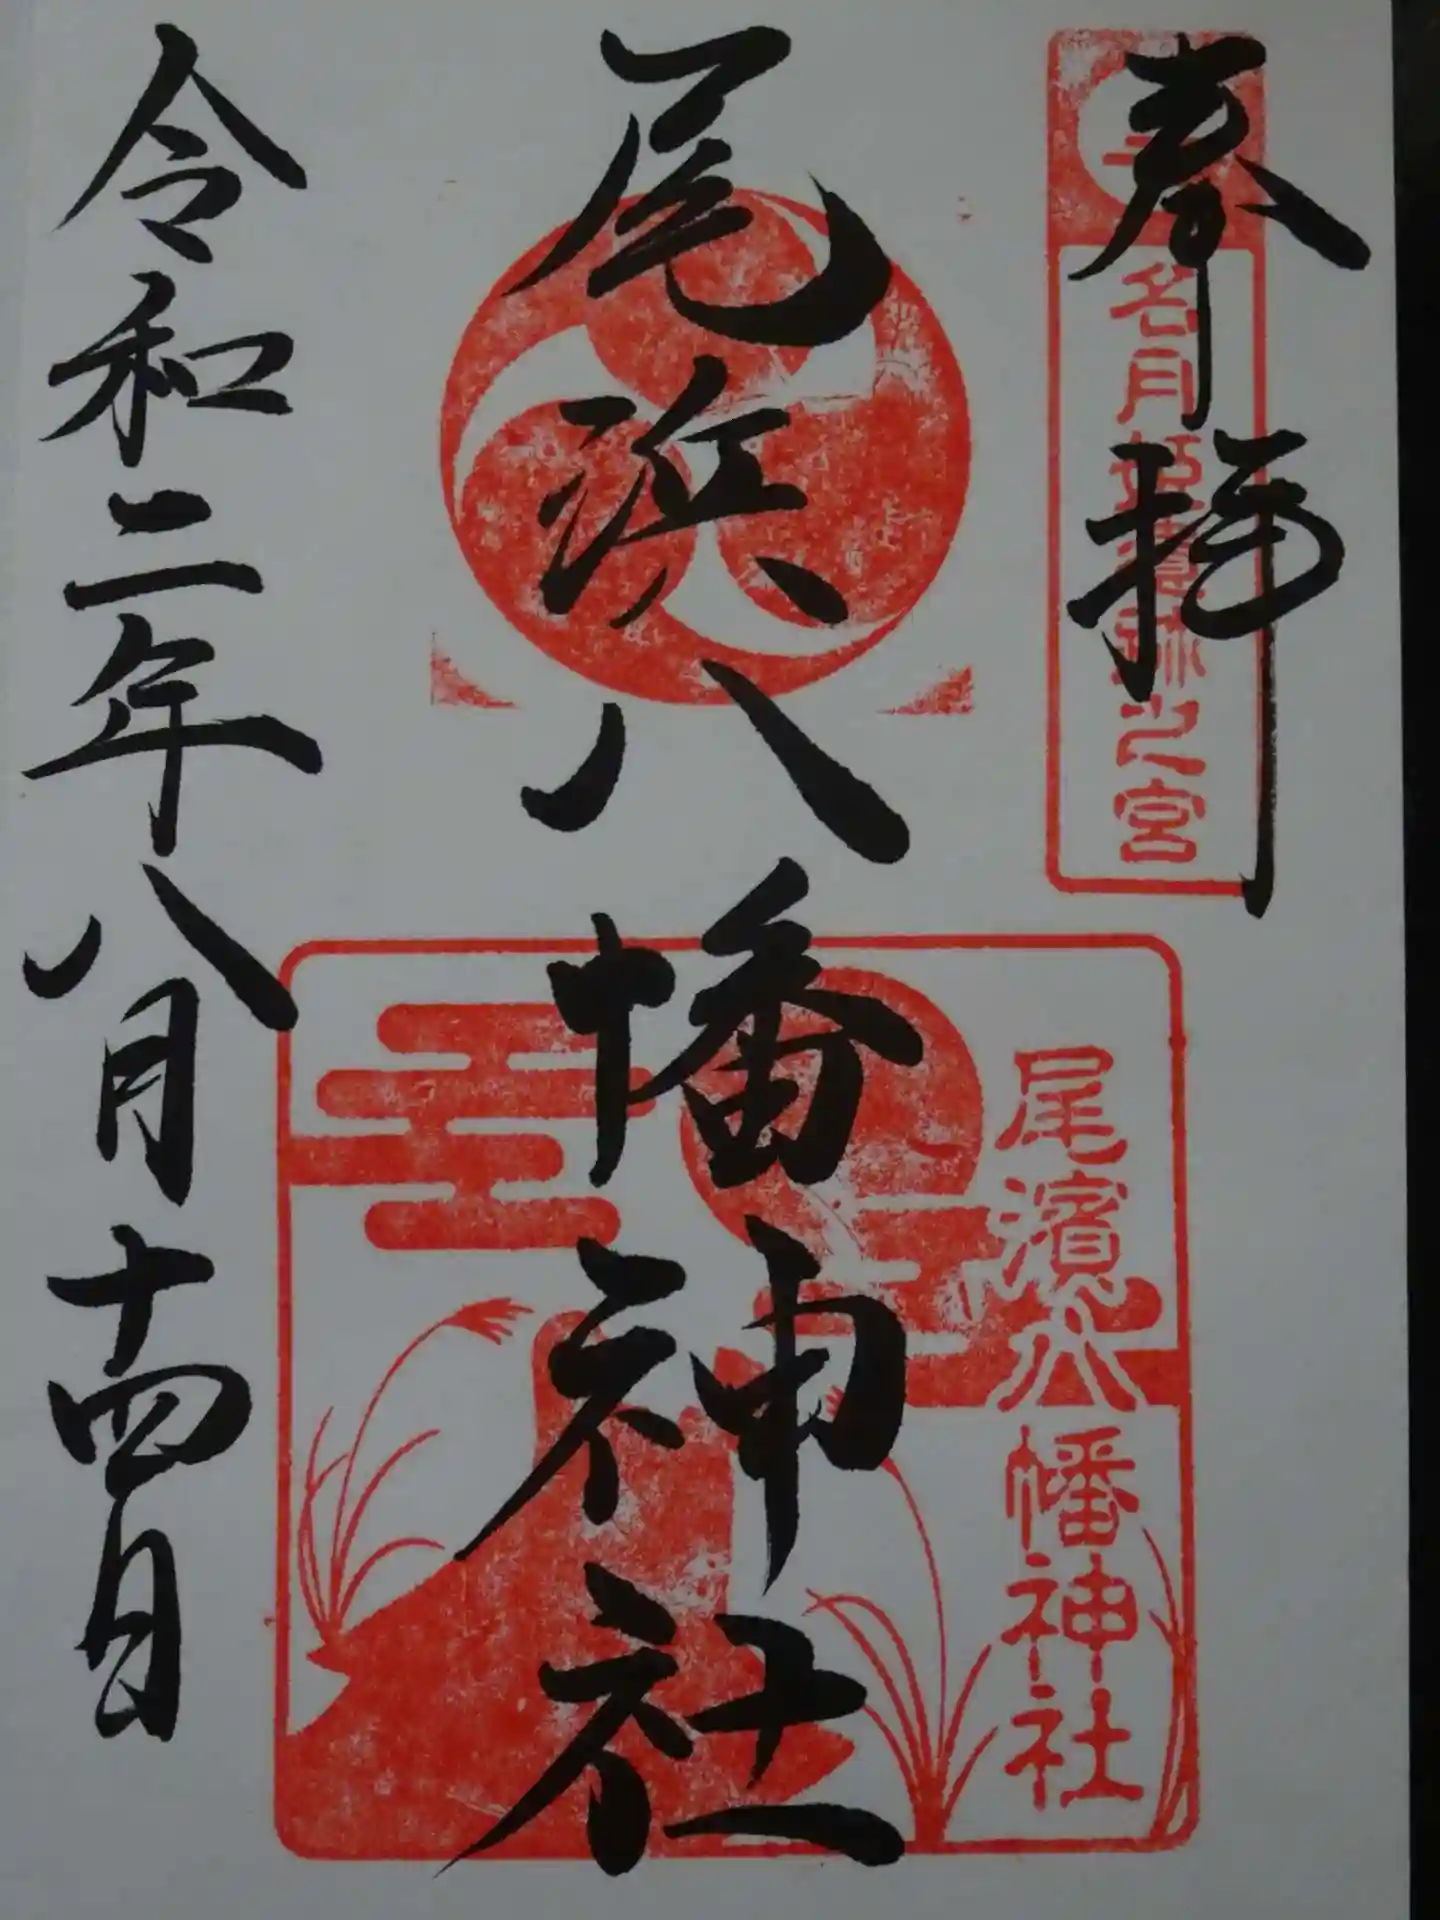 奉拝
名月姫慕跡之宮
尾浜八幡神社
尾濱八幡神社
令和二年八月十四日